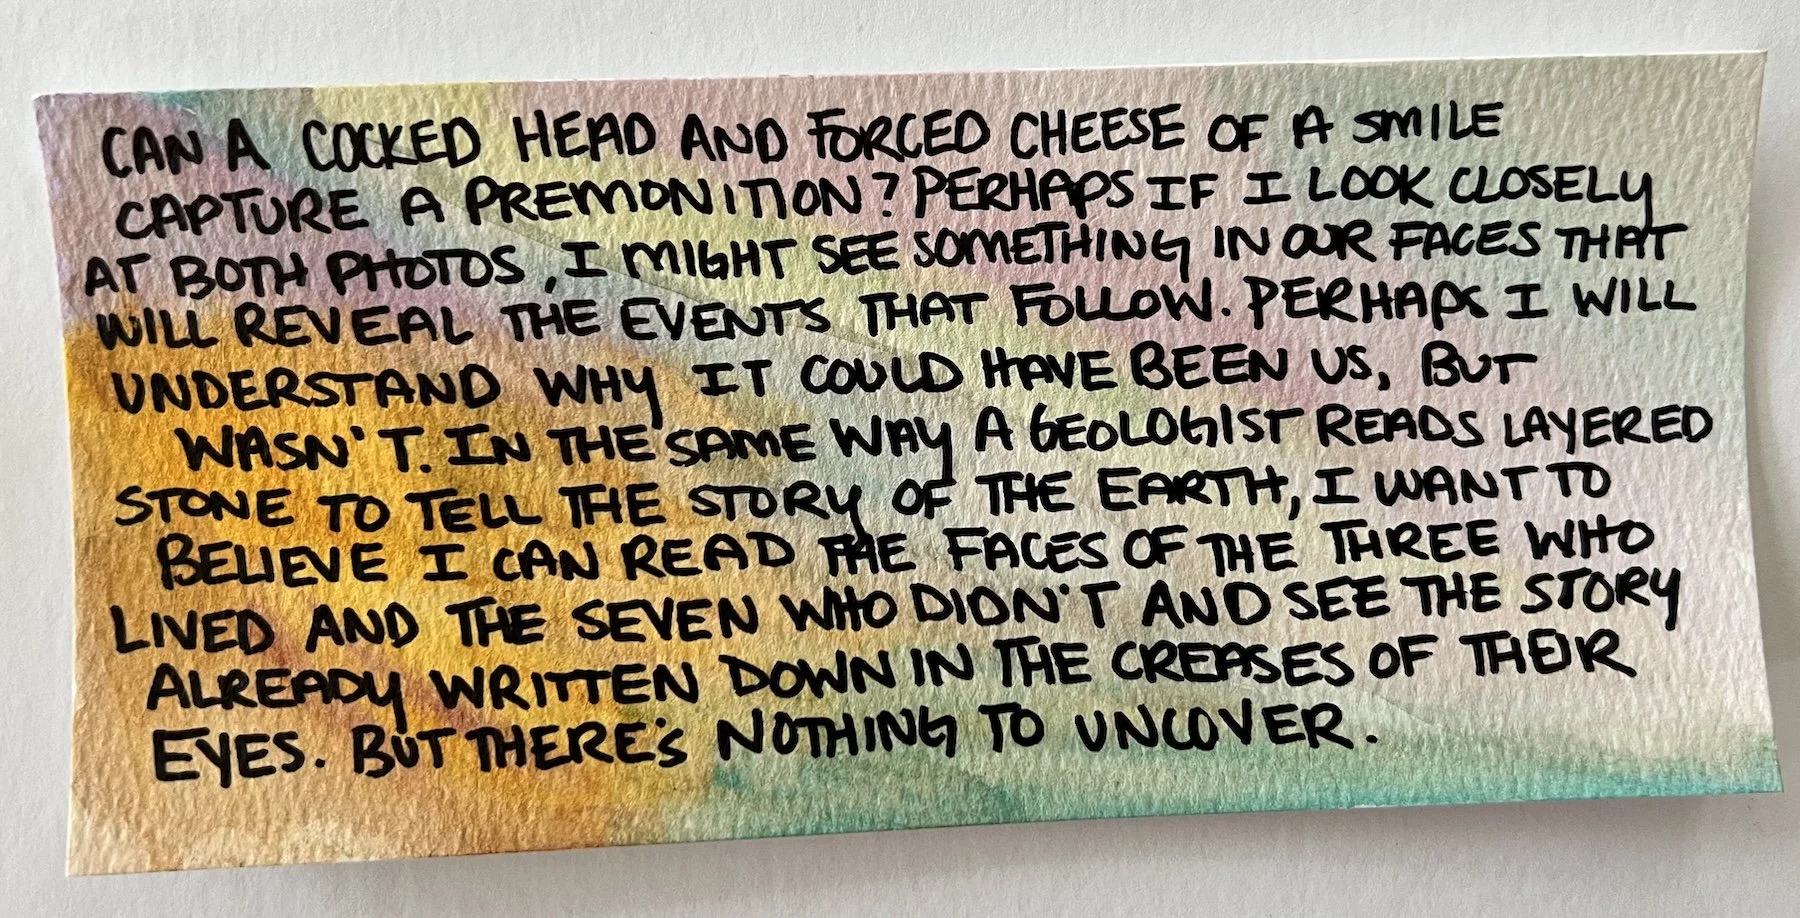 CAN A COCKED HEAD AND FORCED CHEESE OF A SMILE
CAPTURE A PREMONITION? PERHAPS IF I LOOK CLOSELY
AT BOTH PHOTOS, I MIGHT SEE SOMETHING IN OUR FACES THAT
WILL REVEAL THE EVENTS THAT FOLLOW. PERHAPS I WILL
UNDERSTAND WHY IT COULD HAVE BEEN US, BUT
WASN'T. IN THE SAME WAY A GEOLOGIST READS LAYERED
STONE TO TELL THE STORY OF THE EARTH, I WANT TO
BELIEVE I CAN READ THE FACES OF THE THREE WHO
LIVED AND THE SEVEN WHO DIDN'T AND SEE THE STORY
ALREADY WRITTEN DOWN IN THE CREASES OF THEIR
EYES. BUT THERE'S NOTHING TO UNCOVER.